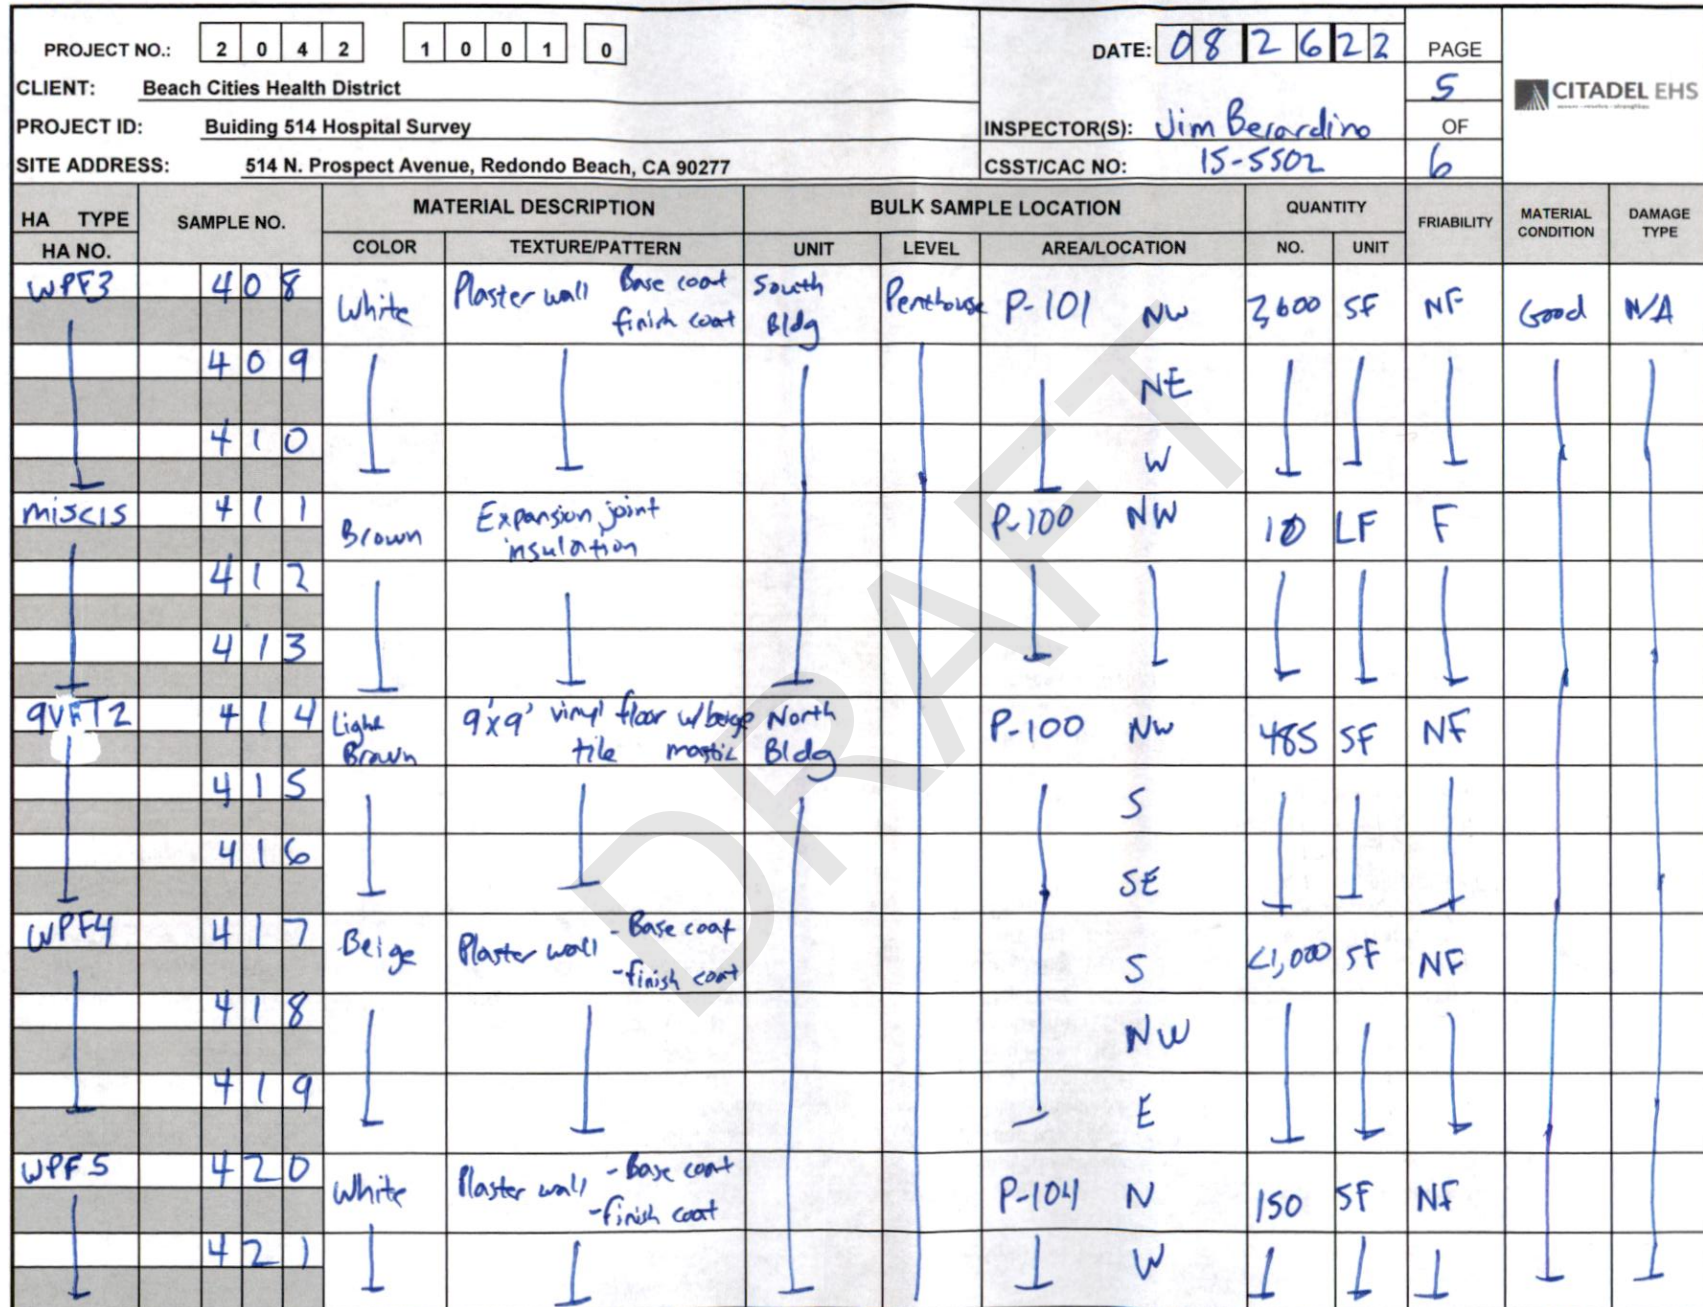 PROJECT NO.: 2 0 4 2 1 0 0 1 0 DATE: 0 8 2 6 2 2 PAGE
CLIENT: Beach Cities Health District 5 CITADEL EHS
PROJECT ID: Buiding 514 Hospital Survey INSPECTOR(S): Jim Berardino OF
SITE ADDRESS: 514 N. Prospect Avenue, Redondo Beach, CA 90277 CSST/CAC NO: 15-5502 6
HA TYPE SAMPLE NO. MATERIAL DESCRIPTION BULK SAMPLE LOCATION QUANTITY FRIABILITY MATERIAL CONDITION DAMAGE TYPE
HA NO. COLOR TEXTURE/PATTERN UNIT LEVEL AREA/LOCATION NO. UNIT
WPF3 4 0 8 White Plaster wall Base coat finish coat South Bldg Penthouse P-101 NW SF NF Good N/A
4 0 9 NE
4 1 0 W
misc15 4 1 1 Brown Expansion joint insulation P-100 NW 10 LF F
4 1 2
4 1 3
9VFT2 4 1 4 Light Brown 9'x9' vinyl floor w/beige tile mastic North Bldg P-100 NW 485 SF NF
4 1 5 S
4 1 6 SE
WPF4 4 1 7 Beige Plaster wall -Base coat -finish coat S <1,000 SF NF
4 1 8 NW
4 1 9 E
WPF5 4 2 0 White Plaster wall -Base coat -finish coat P-104 N 150 SF NF
4 2 1 W
DRAFT